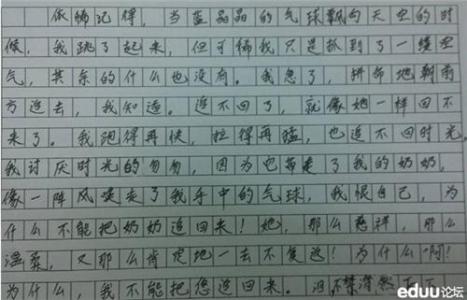 依稀记得，当蓝晶晶的气球飘向天空的时
候，我跳了起来，但可偏我只是抓到了一缕空
气，其余的什么也没有。我急了，拼命地朝前
方追去，我知道。追不回了，就像她一样回不
来了。我跑得再快，拉得再猛，也追不回时光，
我讨厌时光的匆匆，因为它带走了我的奶奶，
像一阵风嗖走了我手中的气球，我恨自己，为
什么不能把奶奶追回来！她，那么慈祥，那么
温柔，又那么肯定地一去不复返！为什么啊！
为什么，我不能把您追回来。泪不禁潸然而下
eduu论坛